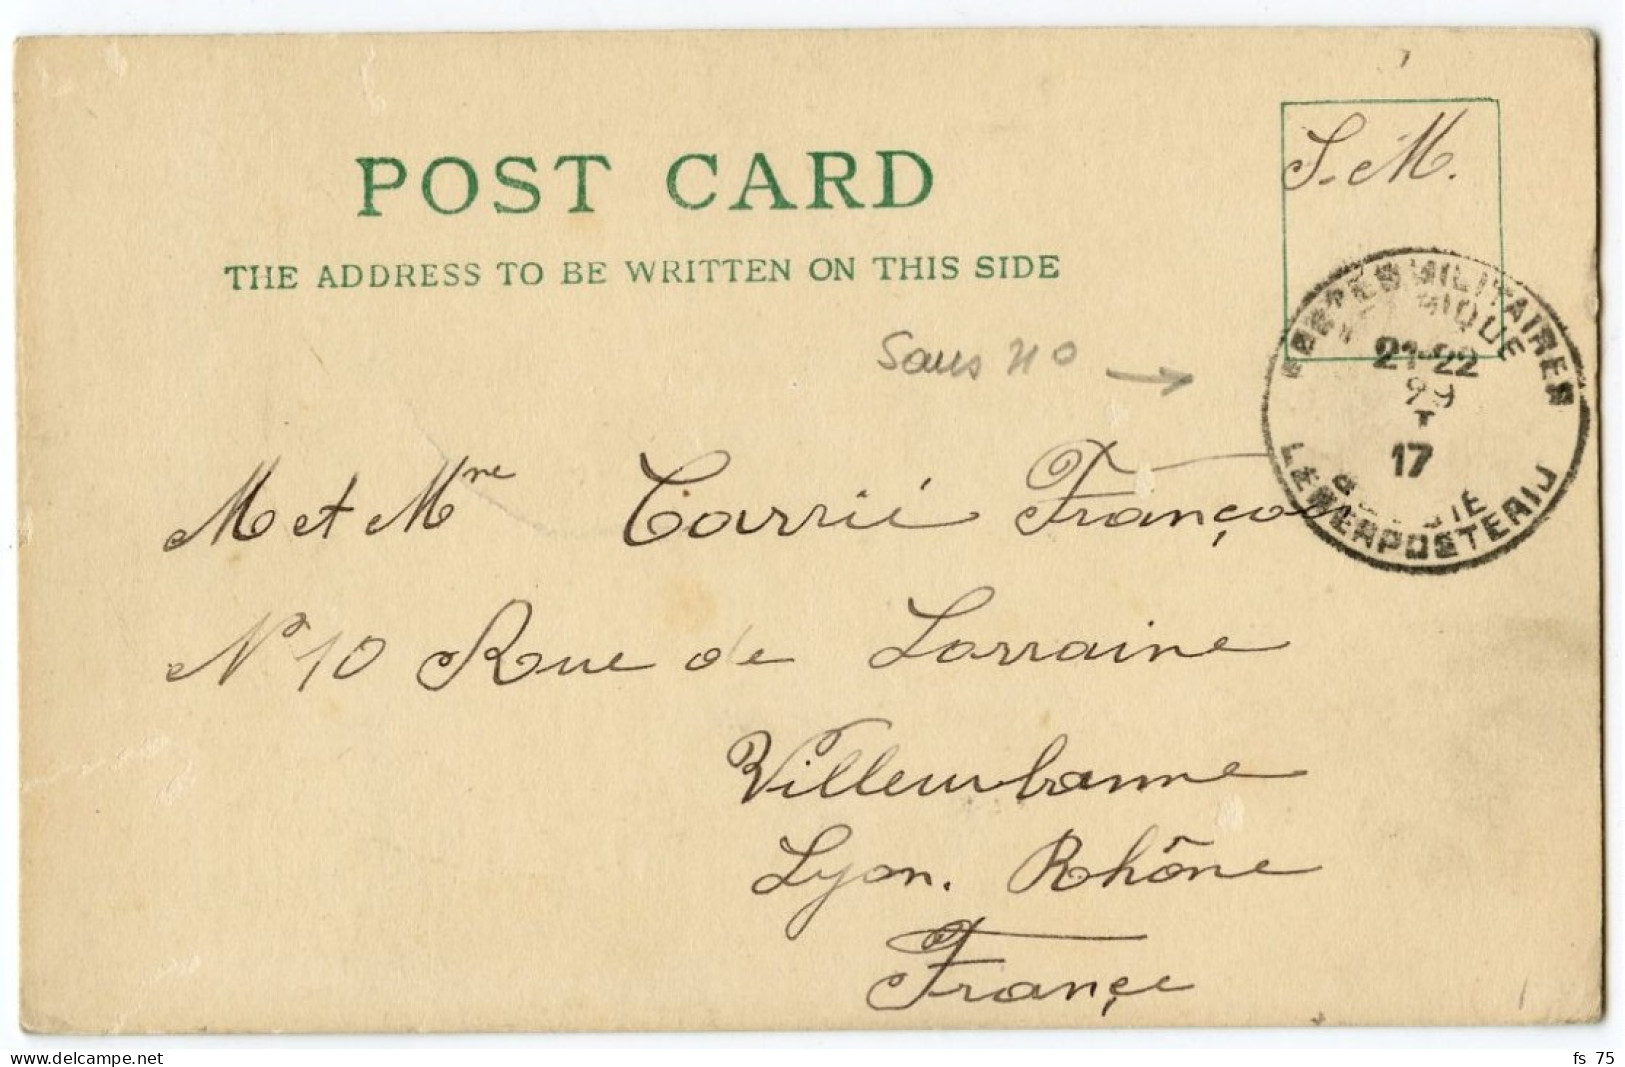 S.M.
POST CARD
THE ADDRESS TO BE WRITTEN ON THIS SIDE
POSTES MILITAIRES
21-22
17
LEGERPOSTERIJ
Sans no
M et Mme Carrié François
No 10 Rue de Lorraine
Villeurbanne
Lyon. Rhône
Françe
www.delcampe.net
fs 75